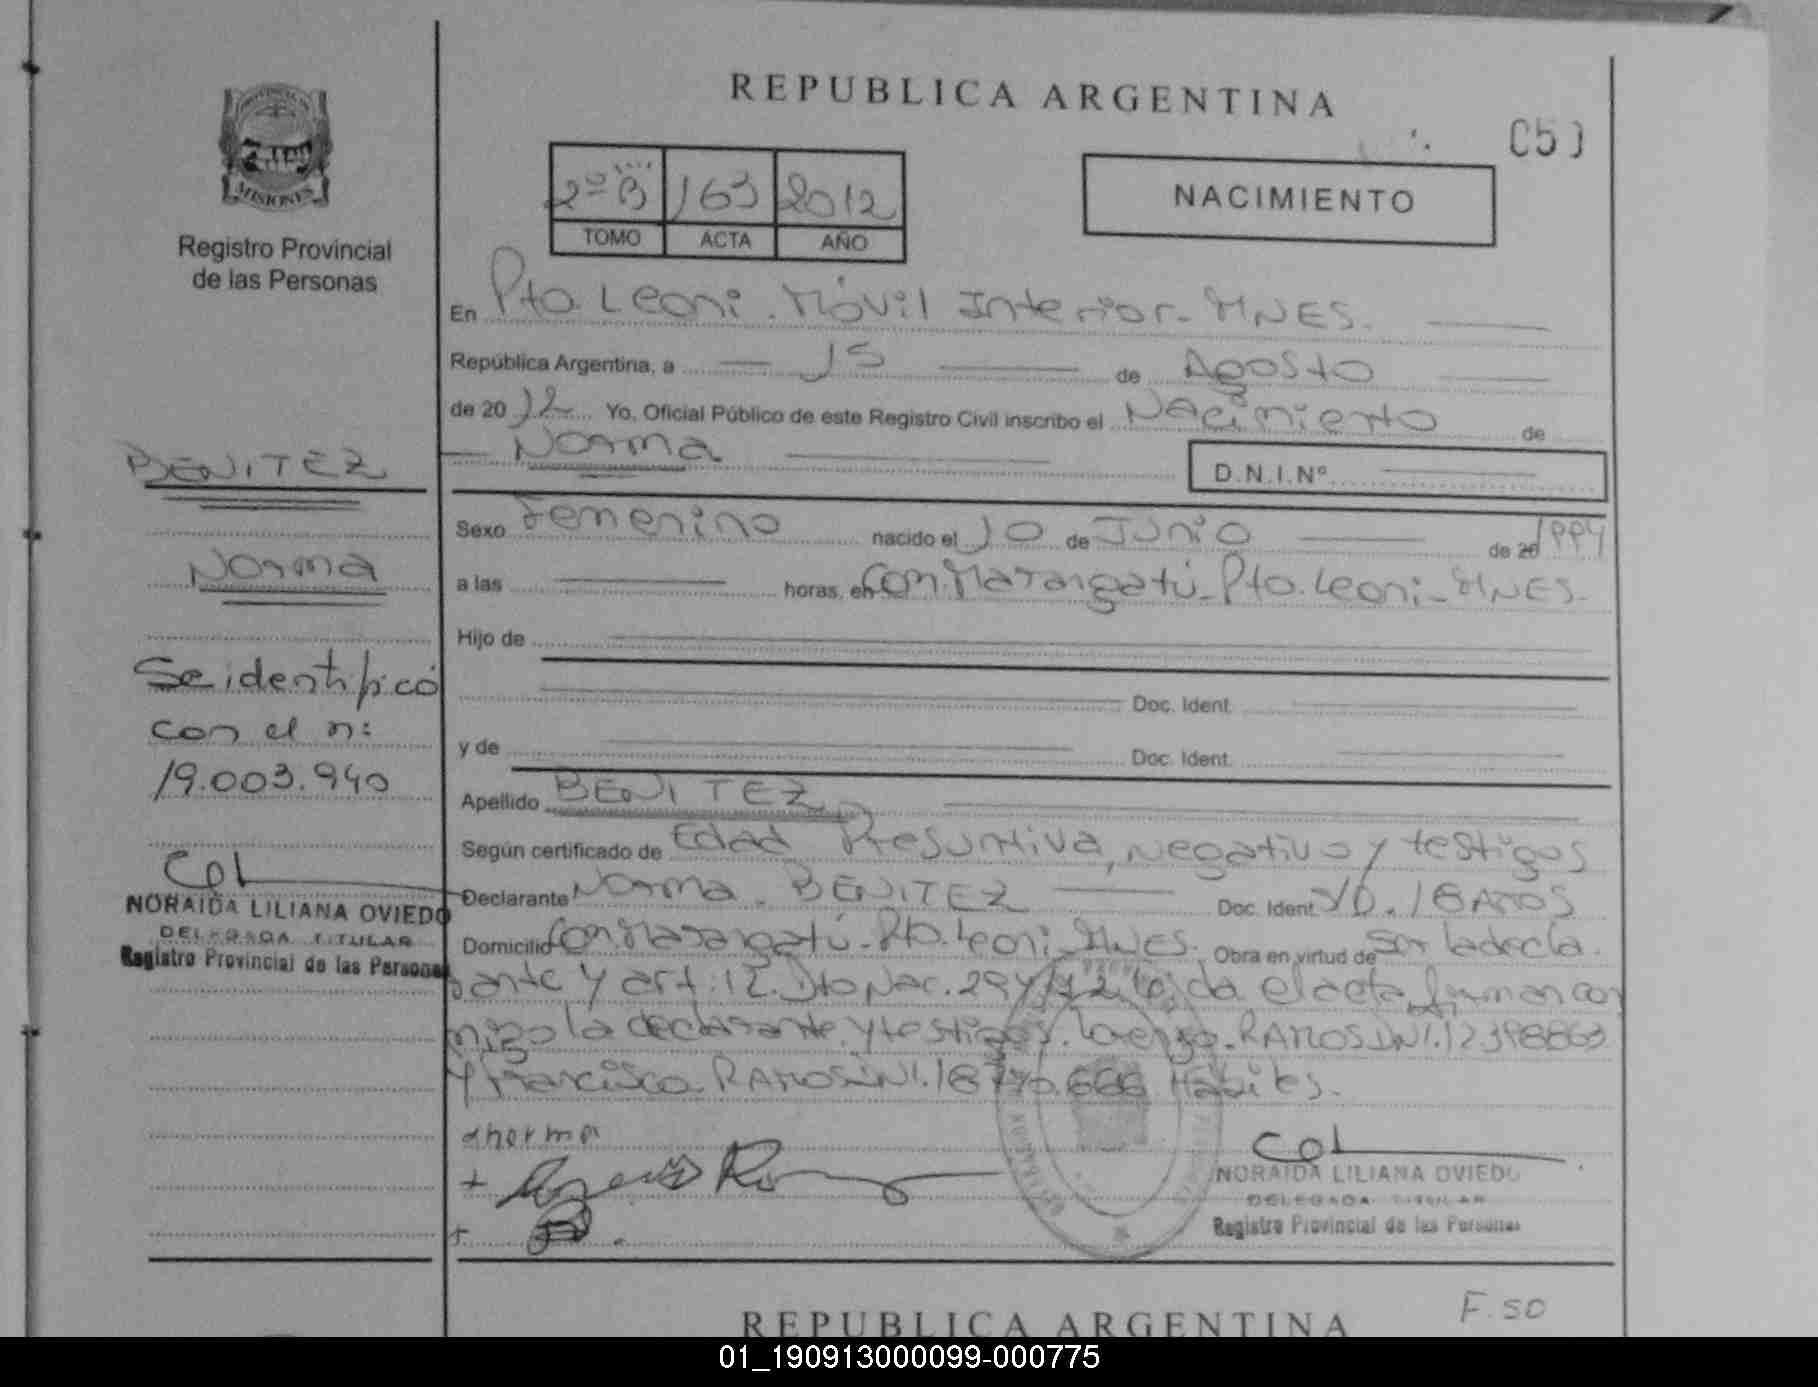 REPUBLICA ARGENTINA
MISIONES
Registro Provincial
de las Personas
2º B 163 2012
TOMO ACTA AÑO
NACIMIENTO
En Pto. Leoni. Móvil Interior. MNES.
República Argentina, a 15 de Agosto
de 2012 Yo, Oficial Público de este Registro Civil inscribo el Nacimiento de
Norma
D.N.I.Nº
Sexo Femenino nacido el 10 de Junio de 20 1994
a las horas, en Com. Marangatú. Pto. Leoni. MNES.
Hijo de
Doc. Ident.
y de Doc. Ident.
Apellido BENITEZ
Según certificado de Edad Presuntiva, negativo y testigos
Declarante Norma. BENITEZ Doc. Ident. 18 Años
Domicilio Com. Marangatú. Pto. Leoni. MNES. Obra en virtud de ser la decla.
rante y art: 12. Dto Nac. el acta firman con
migo la declarante y testigos. Lorenzo. RAMOS DNI.
y Francisco. RAMOS DNI. Hábiles.
NORAIDA LILIANA OVIEDO
DELEGADA TITULAR
Registro Provincial de las Personas
BENITEZ
Norma
Se identificó
con el n:
19.003.940
NORAIDA LILIANA OVIEDO
DELEGADA TITULAR
Registro Provincial de las Personas
F. 50
REPUBLICA ARGENTINA
01_190913000099-000775